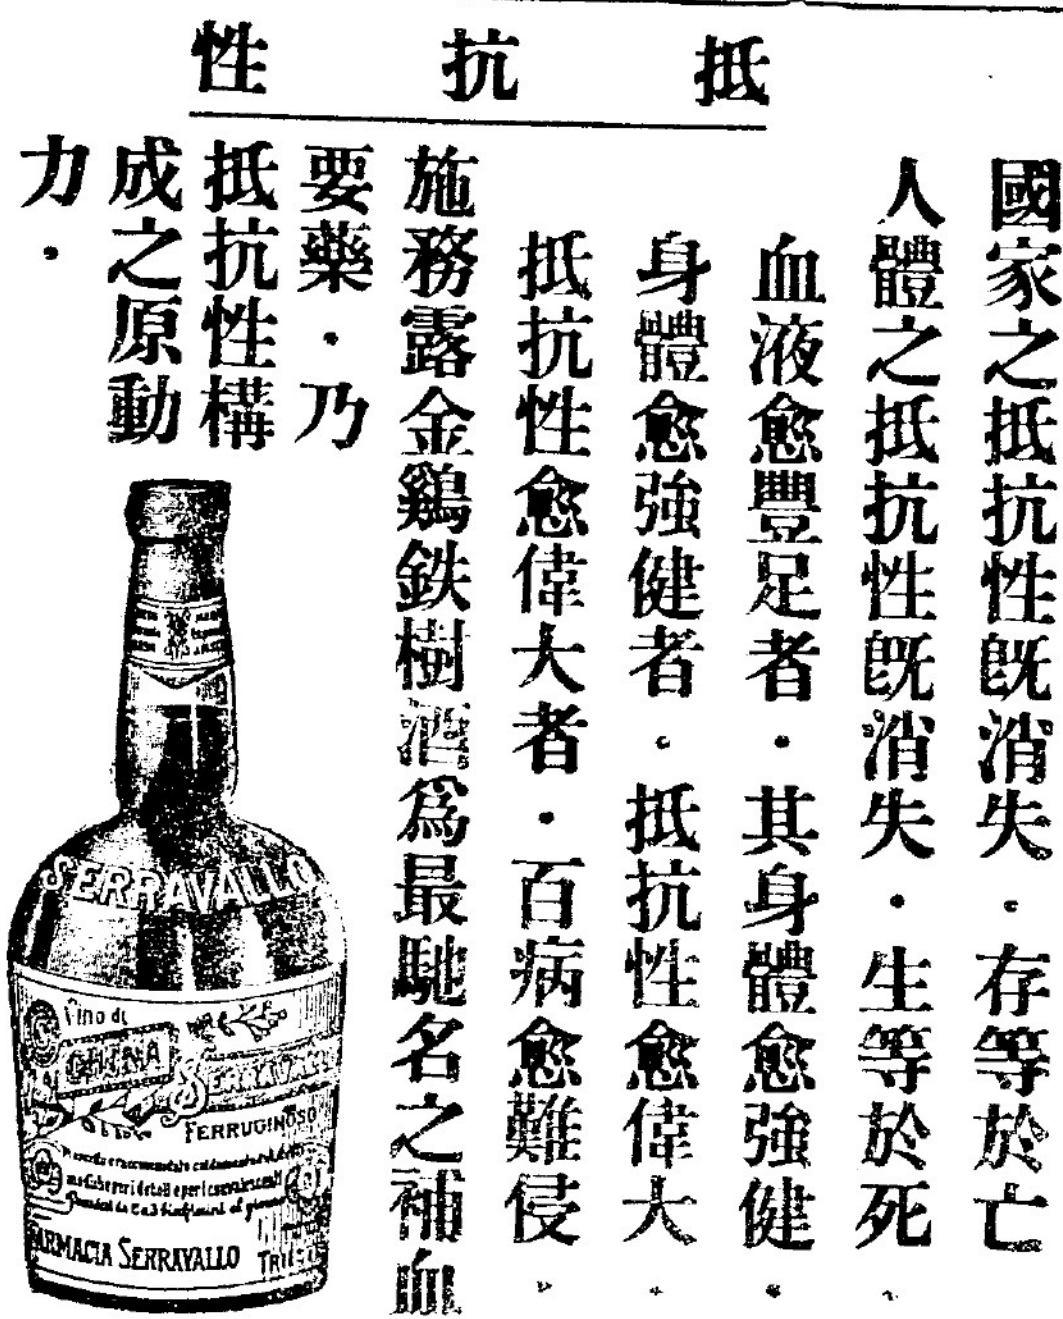 抵抗性
國家之抵抗性既消失．存等於亡
人體之抵抗性既消失．生等於死．
血液愈豐足者．其身體愈強健．
身體愈強健者．抵抗性愈偉大．
抵抗性愈偉大者．百病愈難侵．
施務露金鷄鉄樹酒爲最馳名之補血
要藥．乃
抵抗性構
成之原動
力．
SERRAVALLO
Vino di
CHINA
SERRAVALLO
FERRUGINOSO
FARMACIA SERRAVALLO